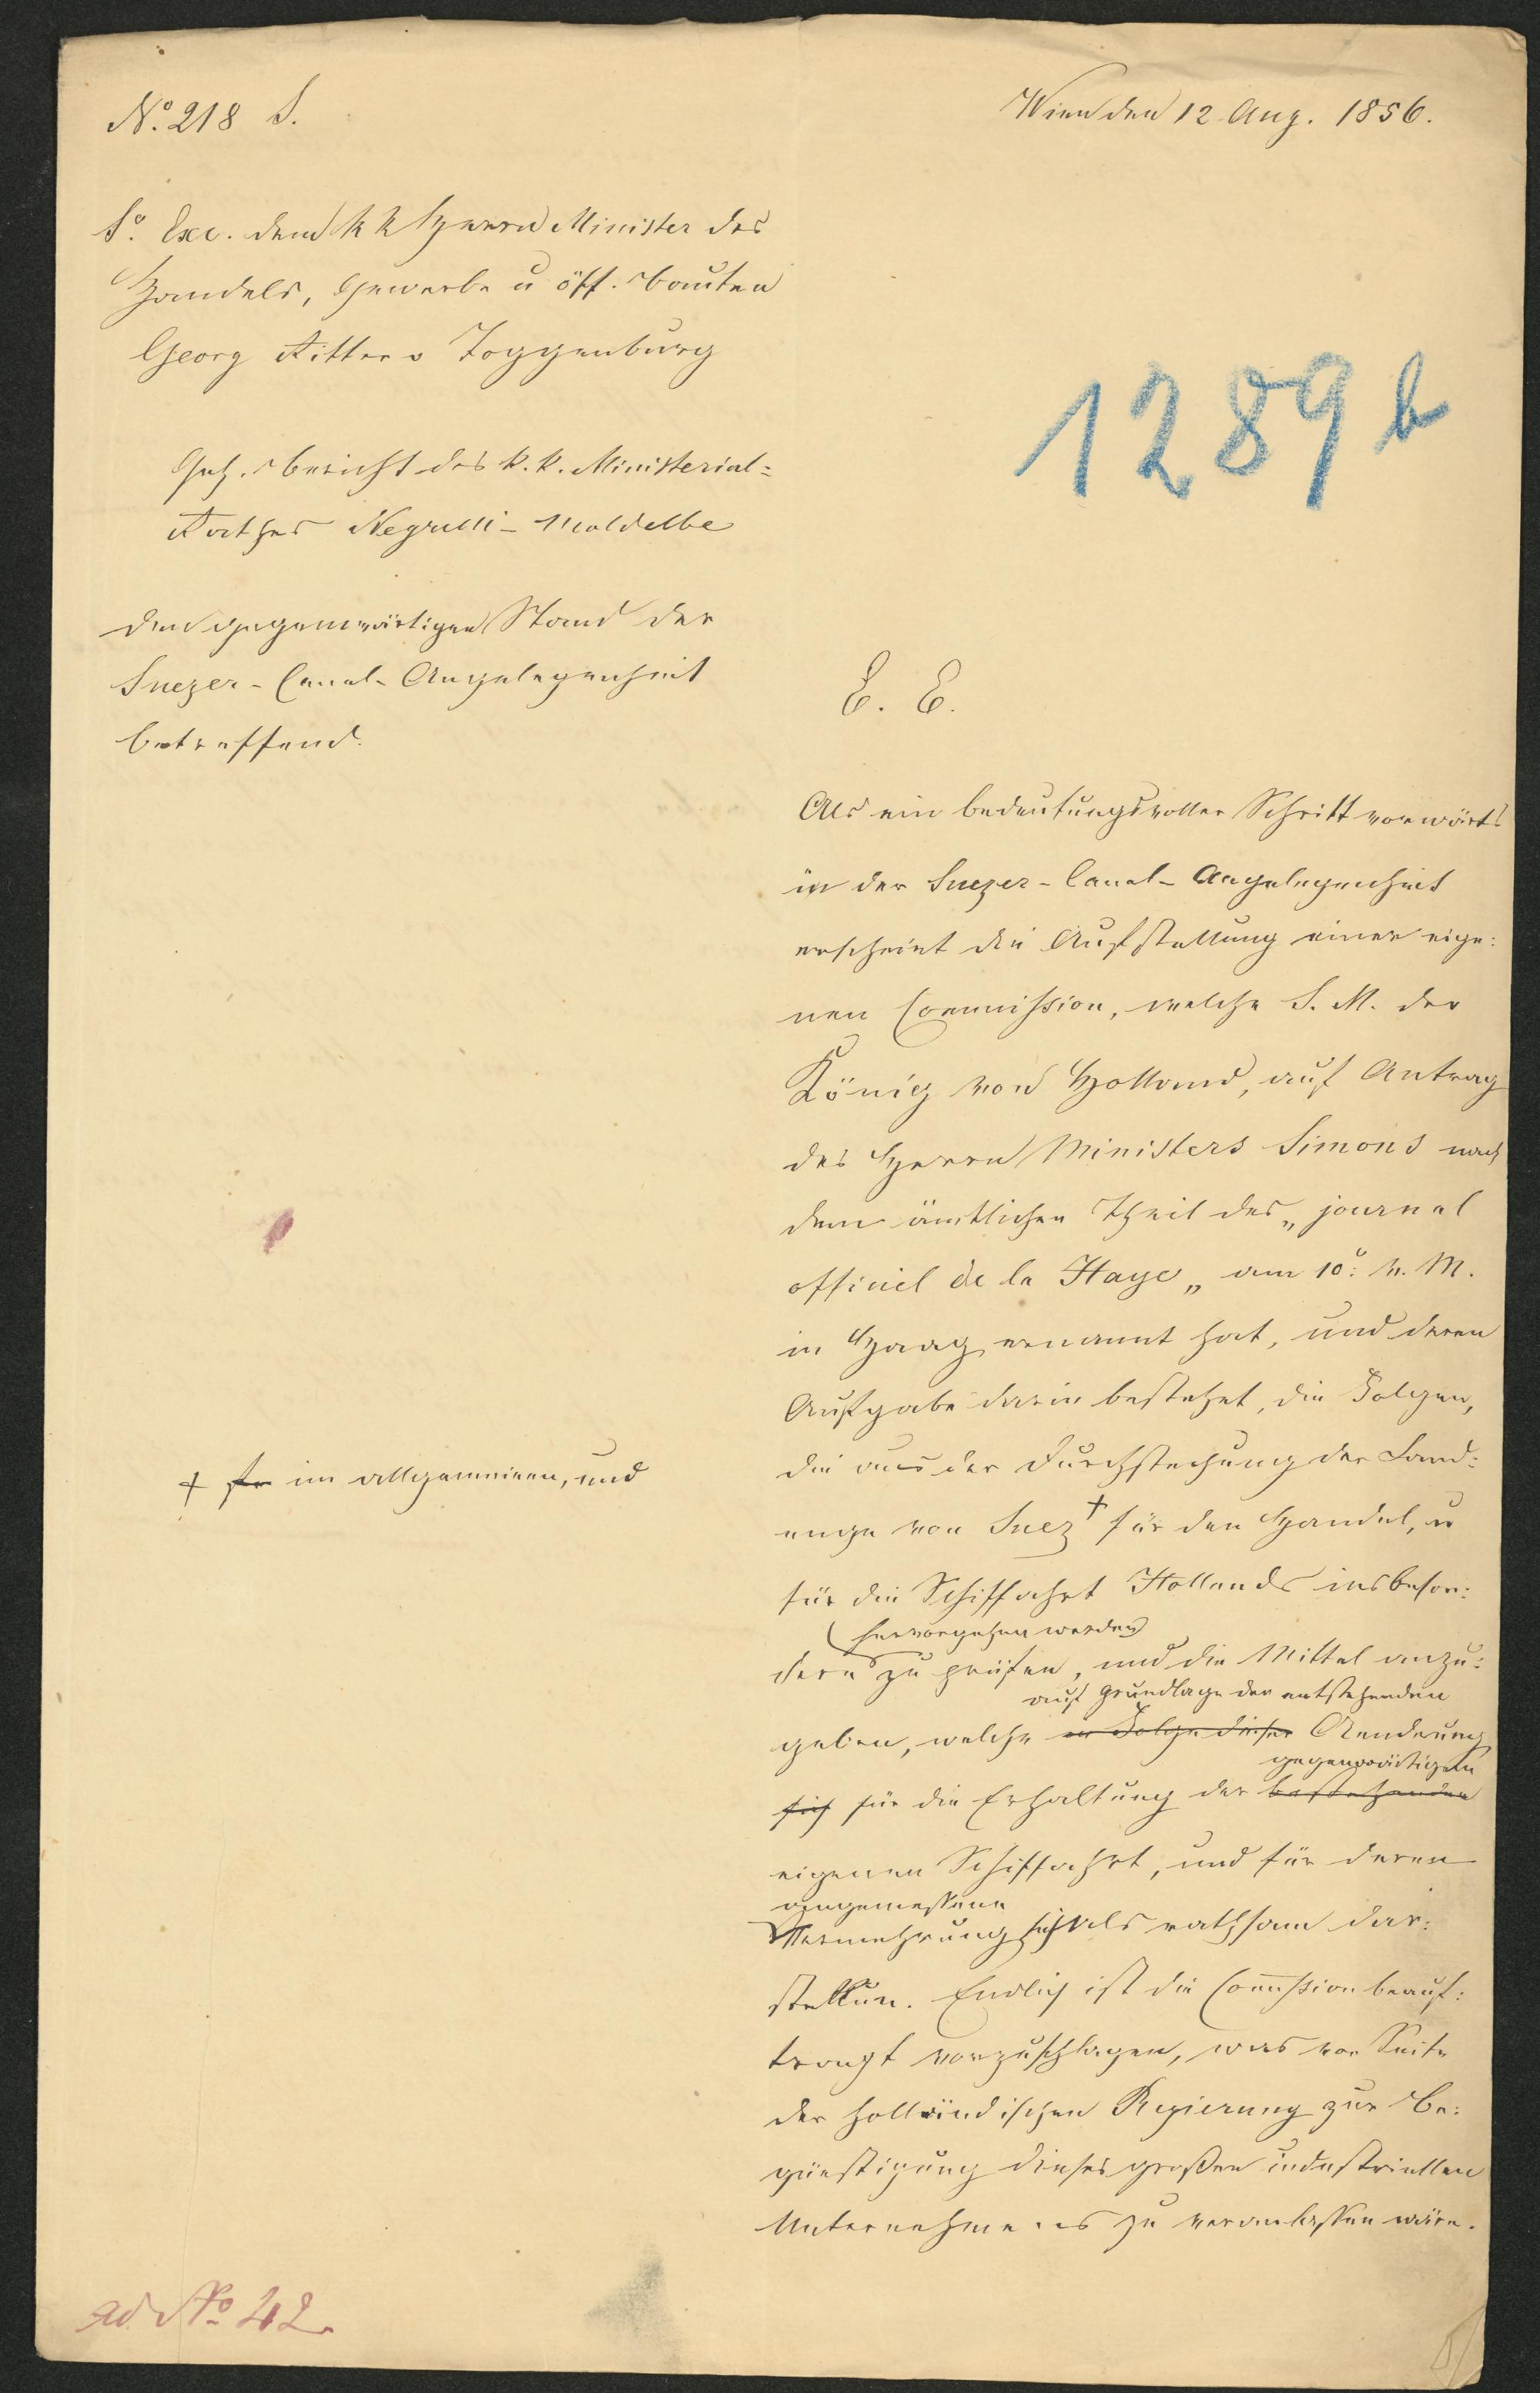 No. 218 S.
Wien den 12 Aug. 1856.
Sr. Exc. dem k k Herrn Minister des
Handels, Gewerbe u öff. Bauten
Georg Ritter v Toggenburg
1289 b
Geh. Bericht des k. k. Ministerial-
Rathes Negrelli-Moldelbe
den gegenwärtigen Stand der
Suezer-Canal-Angelegenheit
betreffend.
E. E.
Als ein bedeutungsvoller Schritt vorwärts
in der Suezer-Canal-Angelegenheit
erscheint die Aufstellung einer eige:
nen Commission, welche S. M. der
König von Holland, auf Antrag
des Herrn Ministers Simons nach
dem ämtlichen Theil des „journal
officiel de la Haye„ am 10. v. M.
in Haag ernannt hat, und deren
Aufgabe darin bestehet, die Folgen,
die aus der Durchstechung der Land:
+ für im allgemeinen, und
enge von Suez + für den Handel, u
für die Schiffahrt Hollands insbeson:
hervorgehen werden
dere zu prüfen, und die Mittel anzu:
auf Grundlage der entstehenden
geben, welche in Folge dieser Aenderung
gegenwärtigen
sich für die Erhaltung der bestehenden
eigenen Schiffahrt, und für deren
angemessene
Vermehrung sich als rathsam dar:
stellen. Endlich ist die Commission beauf:
tragt vorzuschlagen, was von Seite
der holländischen Regierung zur Be:
günstigung dieses großen industriellen
Unternehmens zu veranlassen wäre.
ad No 42.